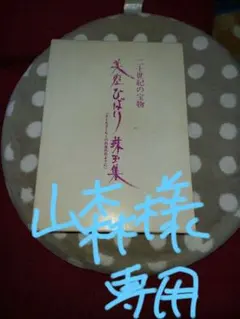 二十世紀の宝物
美空ひばり
珠玉集
山森様
専用